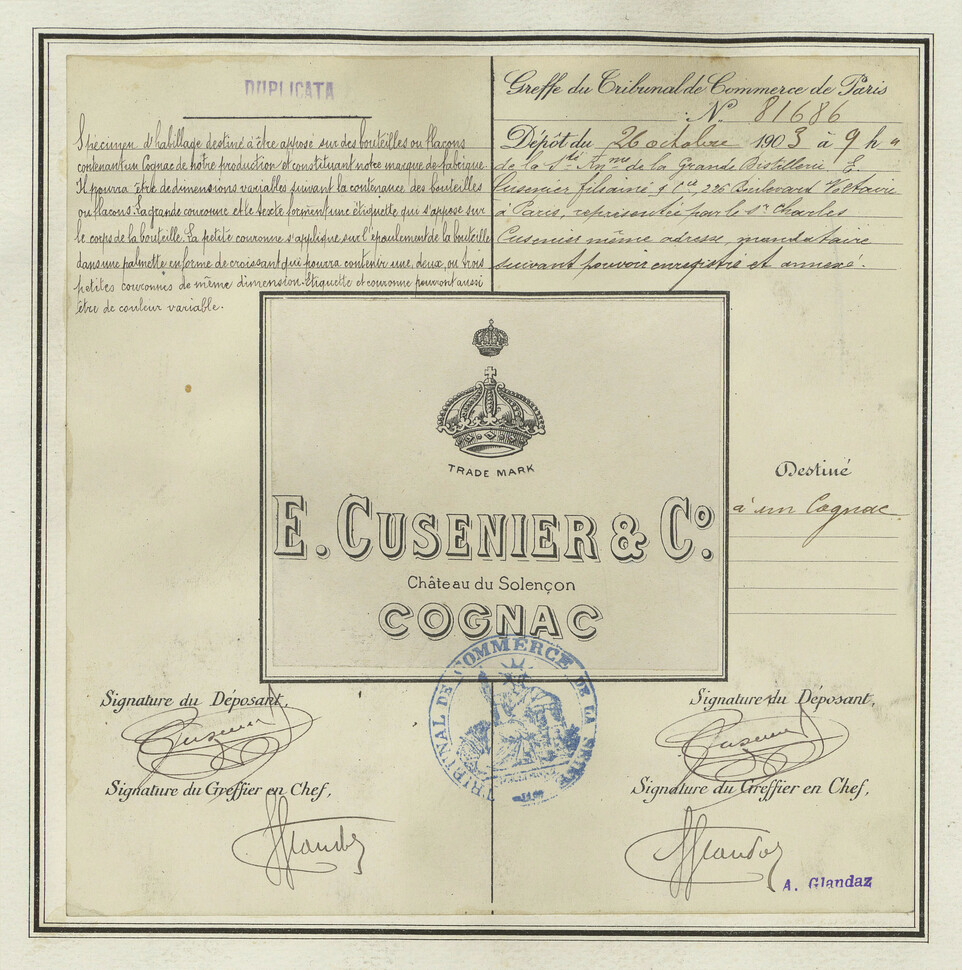 DUPLICATA
Spécimen d'habillage destiné à être apposé sur des bouteilles ou flacons
contenant un Cognac de notre production et constituant notre marque de fabrique.
Il pourra être de dimensions variables suivant la contenance des bouteilles
ou flacons. La grande couronne et le texte forment une étiquette qui s'appose sur
le corps de la bouteille. La petite couronne s'applique sur l'épaulement de la bouteille
dans une palmette en forme de croissant qui pourra contenir une, deux, ou trois
petites couronnes de même dimension. Etiquette et couronne pourront aussi
être de couleur variable.
Greffe du Tribunal de Commerce de Paris
N° 81686
Dépôt du 26 octobre 1903 à 9 h
de la Sté Anme de la Grande Distillerie E.
Cusenier fils aîné & Cie, 226 Boulevard Voltaire
à Paris, représentée par le sr Charles
Cusenier même adresse, mandataire
suivant pouvoir enregistré et annexé.
TRADE MARK
E. CUSENIER & Co.
Château du Solençon
COGNAC
Destiné
à un Cognac
TRIBUNAL DE COMMERCE DE LA SEINE
Signature du Déposant,
Cusenier
Signature du Greffier en Chef,
Glandaz
Signature du Déposant,
Cusenier
Signature du Greffier en Chef,
Glandaz
A. Glandaz